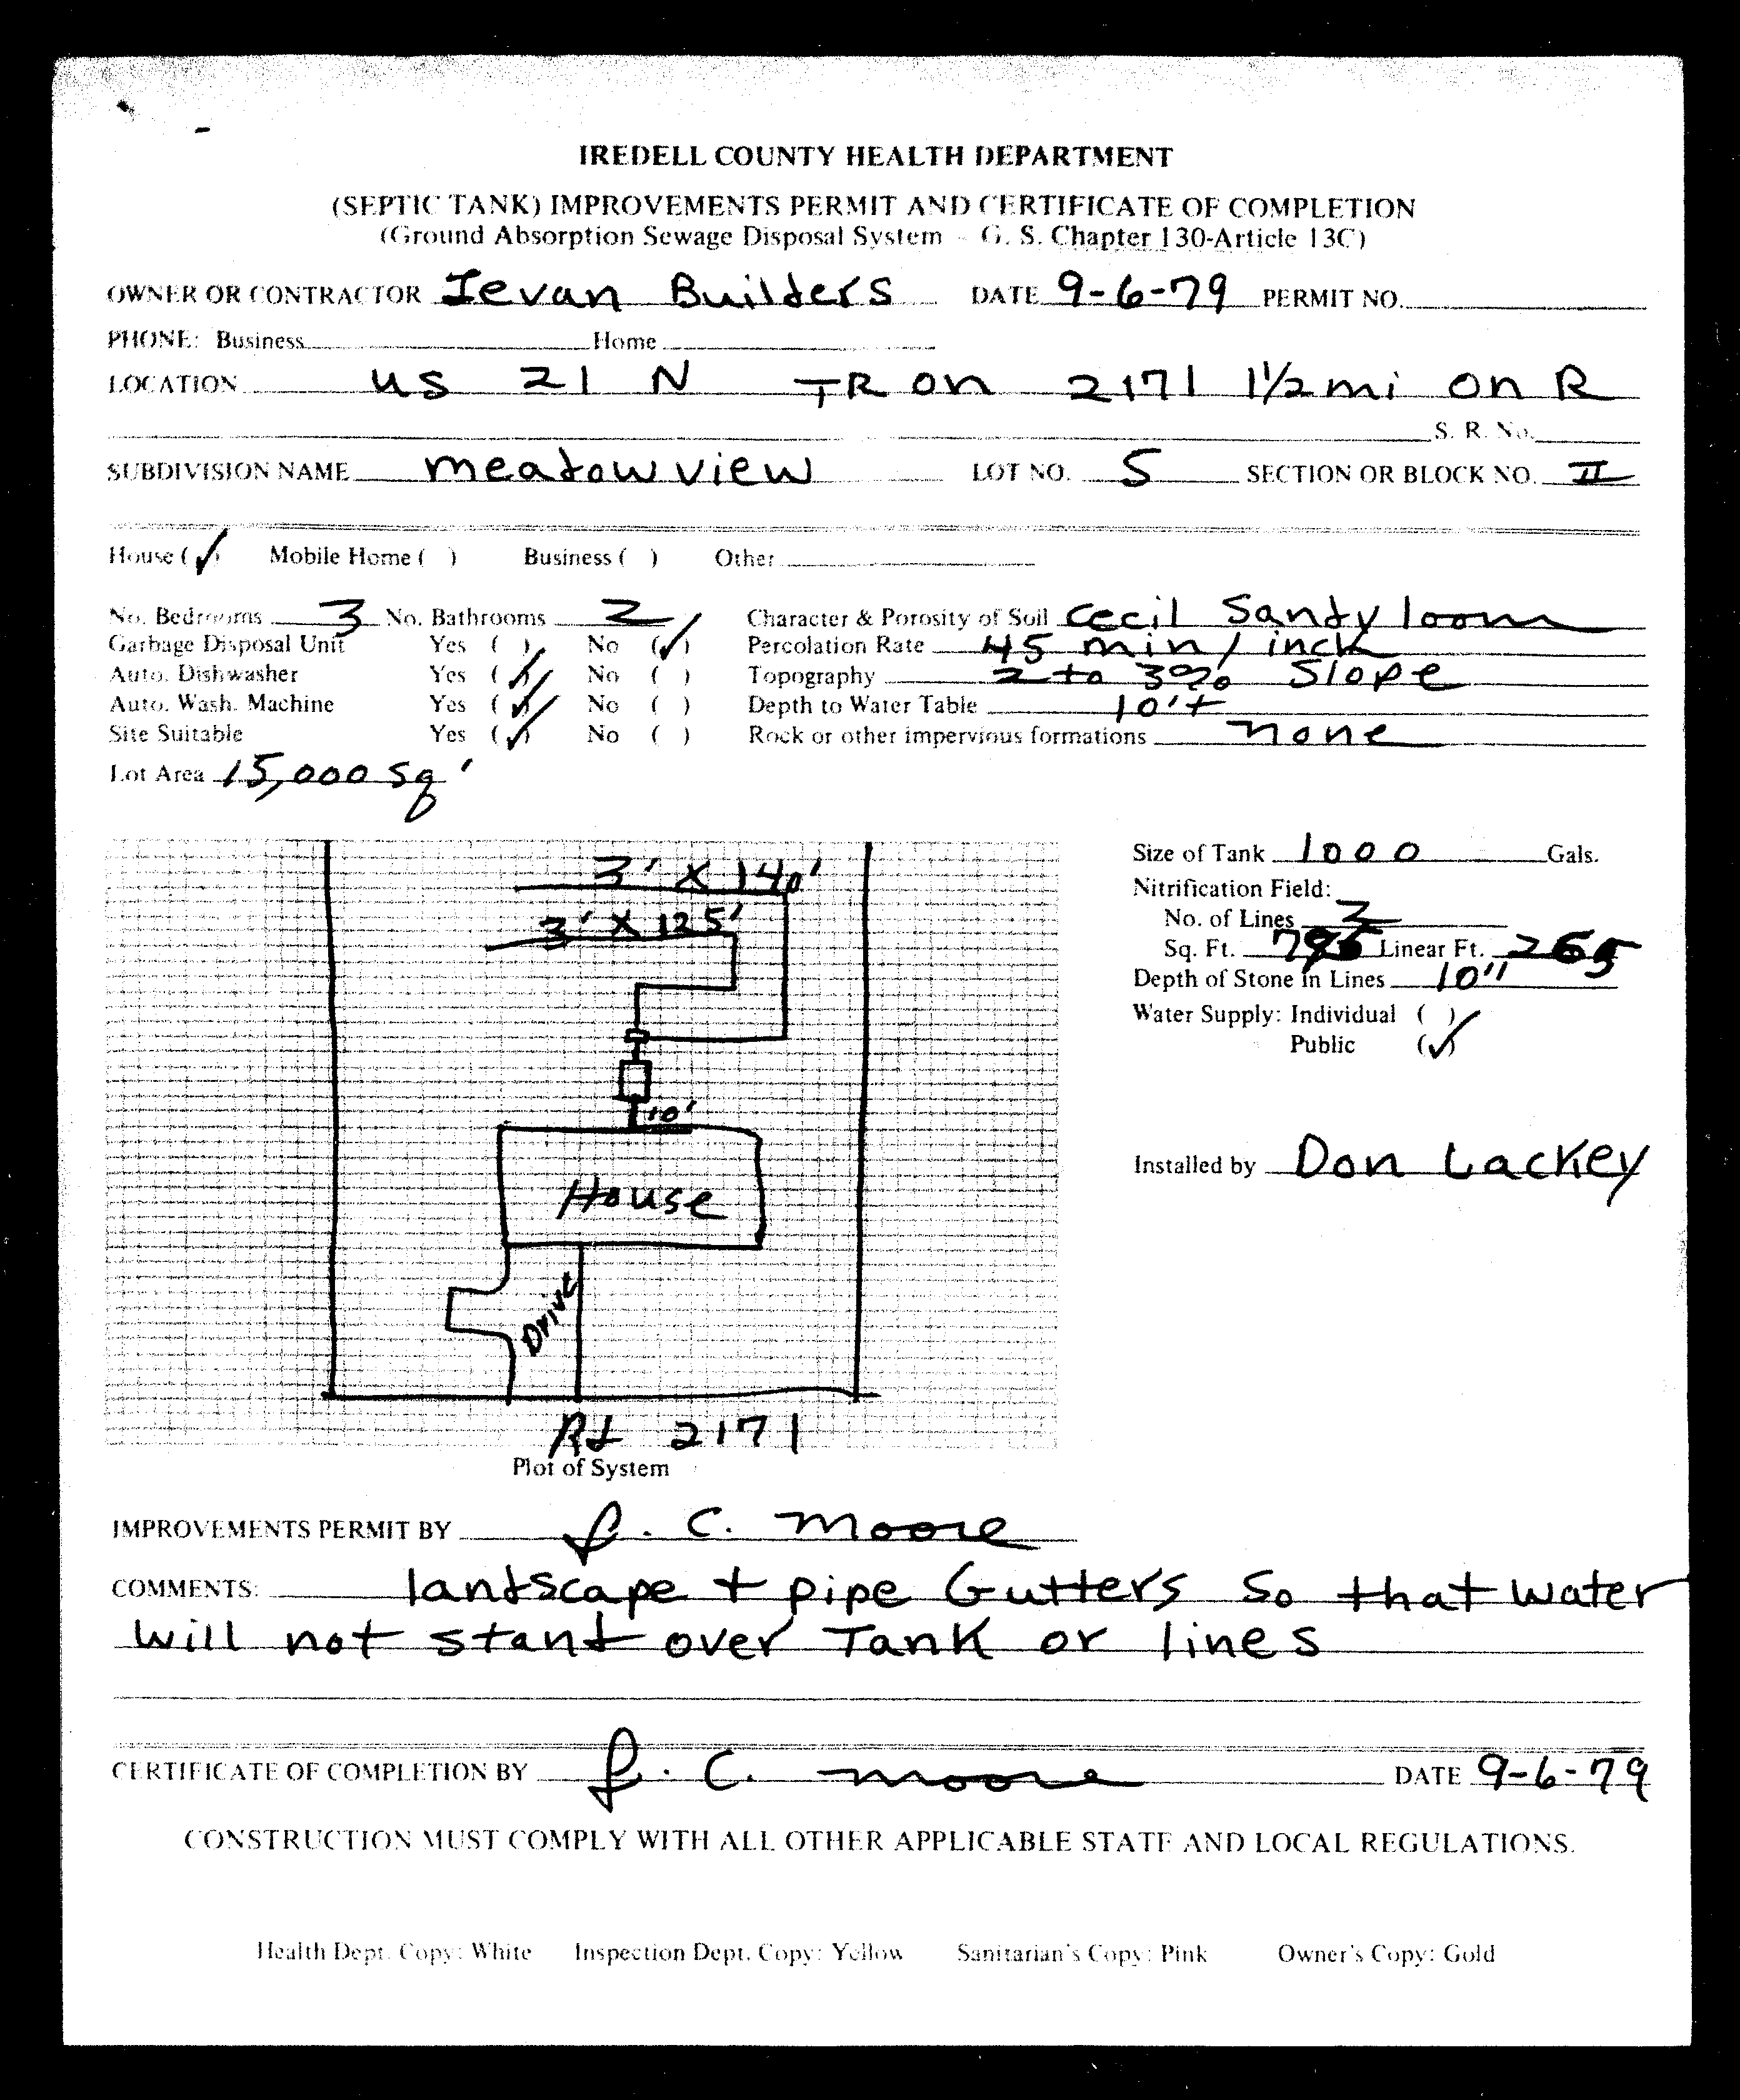 IREDELL COUNTY HEALTH DEPARTMENT
(SEPTIC TANK) IMPROVEMENTS PERMIT AND CERTIFICATE OF COMPLETION
(Ground Absorption Sewage Disposal System - G. S. Chapter 130-Article 13C)
OWNER OR CONTRACTOR Ievan Builders DATE 9-6-79 PERMIT NO.
PHONE: Business Home
LOCATION US 21 N TR on 2171 1½ mi on R
S. R. No.
SUBDIVISION NAME meadowview LOT NO. 5 SECTION OR BLOCK NO. II
House (✓) Mobile Home ( ) Business ( ) Other
No. Bedrooms 3 No. Bathrooms 2 Character & Porosity of Soil Cecil Sandy loom
Garbage Disposal Unit Yes ( ) No (✓) Percolation Rate 45 min / inch
Auto. Dishwasher Yes (✓) No ( ) Topography 2 to 3% Slope
Auto. Wash. Machine Yes (✓) No ( ) Depth to Water Table 10'+
Site Suitable Yes (✓) No ( ) Rock or other impervious formations none
Lot Area 15,000 sq '
3' X 140'
3' X 125'
10'
House
Drive
Rd 2171
Plot of System
Size of Tank 1000 Gals.
Nitrification Field:
No. of Lines 2
Sq. Ft. 795 Linear Ft. 265
Depth of Stone in Lines 10"
Water Supply: Individual ( )
Public (✓)
Installed by Don Lackey
IMPROVEMENTS PERMIT BY J. C. Moore
COMMENTS: landscape + pipe Gutters so that water
will not stand over Tank or lines
CERTIFICATE OF COMPLETION BY J. C. Moore DATE 9-6-79
CONSTRUCTION MUST COMPLY WITH ALL OTHER APPLICABLE STATE AND LOCAL REGULATIONS.
Health Dept. Copy: White Inspection Dept. Copy: Yellow Sanitarian's Copy: Pink Owner's Copy: Gold